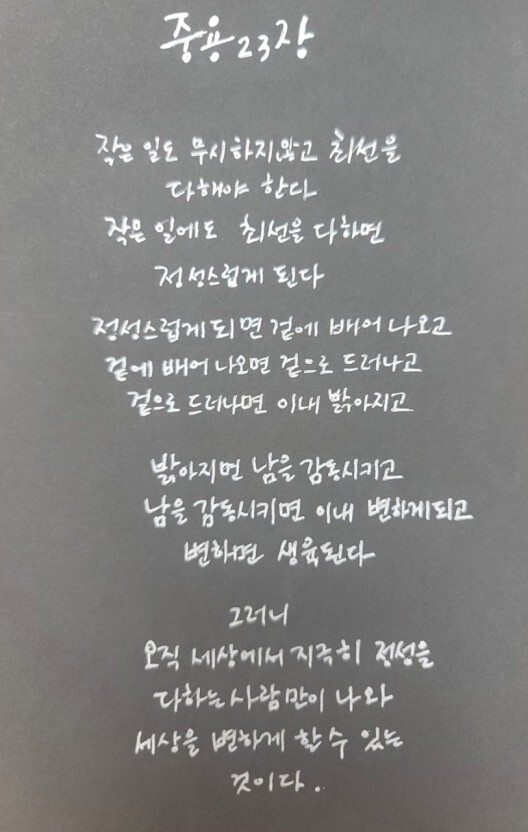 중용23장
작은 일도 무시하지않고 최선을
다해야 한다
작은 일에도 최선을 다하면
정성스럽게 된다
정성스럽게되면 겉에 배어 나오고
겉에 배어 나오면 겉으로 드러나고
겉으로 드러나면 이내 밝아지고
밝아지면 남을 감동시키고
남을 감동시키면 이내 변하게되고
변하면 생육된다
그러니
오직 세상에서 지극히 정성을
다하는 사람만이 나와
세상을 변하게 할 수 있는
것이다.